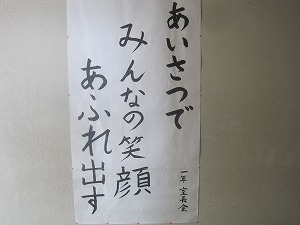 あいさつで
みんなの笑顔
あふれ出す
一年 室長会